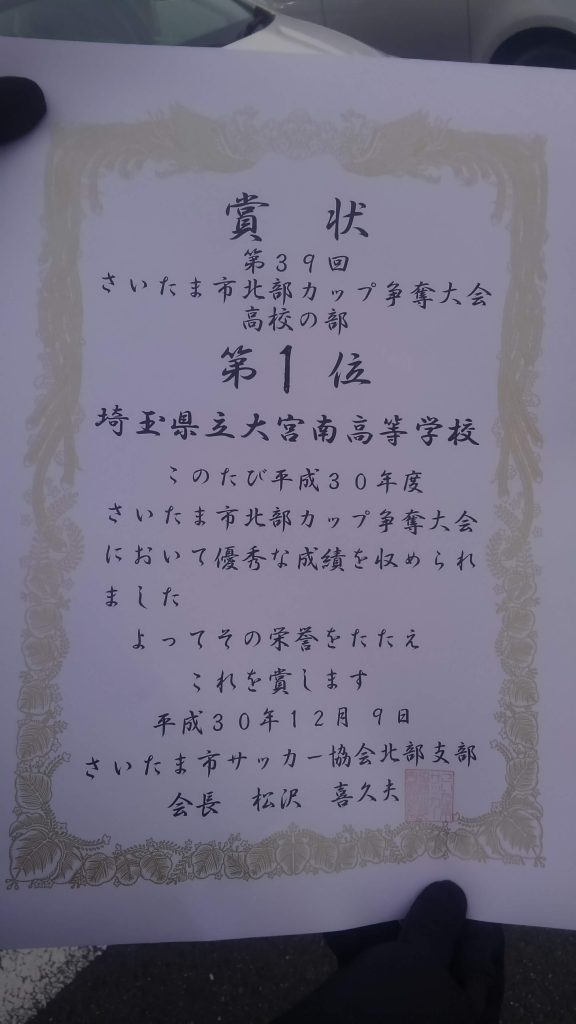 賞 状
第39回
さいたま市北部カップ争奪大会
高校の部
第1位
埼玉県立大宮南高等学校
このたび平成30年度
さいたま市北部カップ争奪大会
において優秀な成績を収められ
ました
よってその栄誉をたたえ
これを賞します
平成30年12月 9日
さいたま市サッカー協会北部支部
会長 松沢 喜久夫